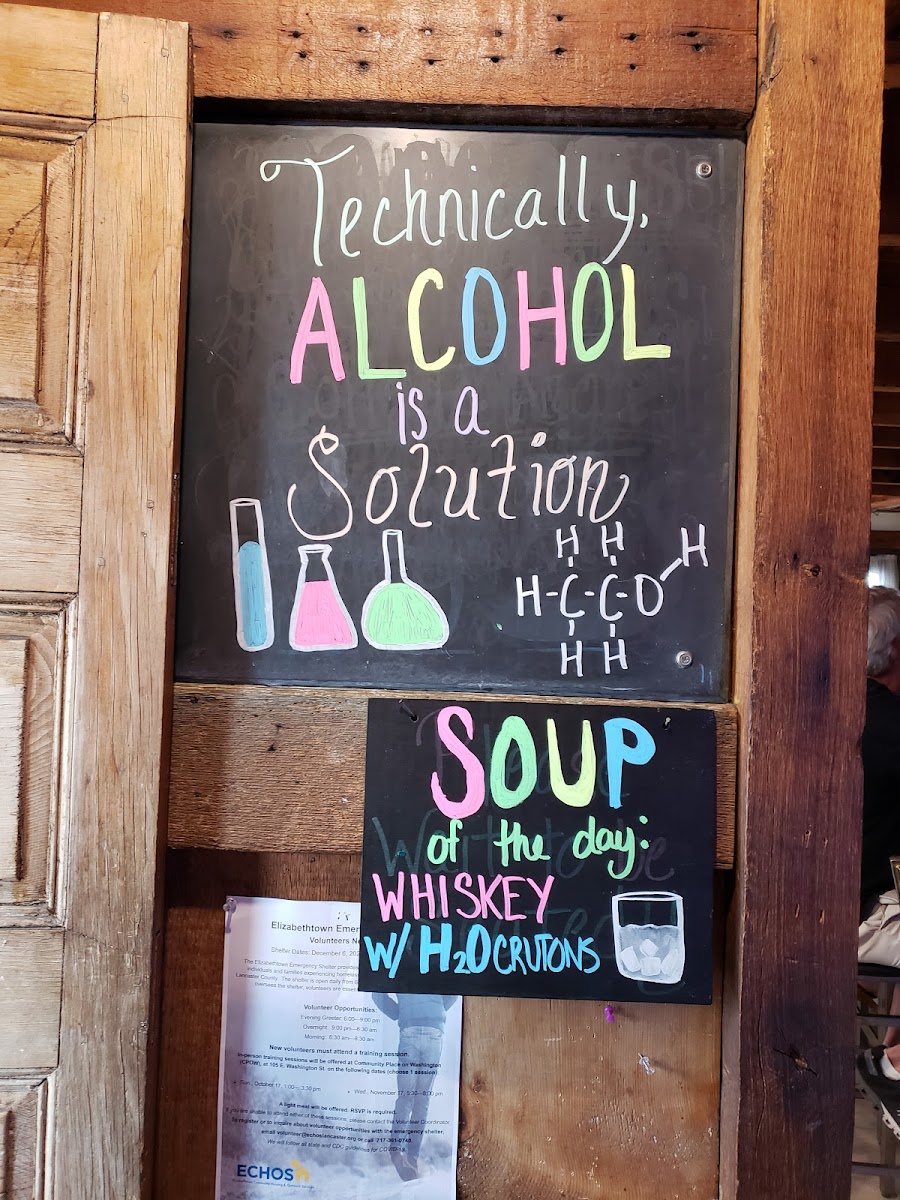 Technically,
ALCOHOL
is a
Solution
H H H
H-C-C-O
H H
SOUP
of the day:
WHISKEY
W/ H₂OCRUTONS
Elizabethtown
Volunteers
Shelter Dates: December
The Elizabethtown Emergency Shelter
individuals and families experiencing
Lancaster County. The shelter is open daily from
oversees the shelter, volunteers are
Volunteer Opportunities:
Evening Greeter: 6:00—9:00 pm
Overnight: 9:00 pm—6:30 am
Morning: 6:30 am—8:30 am
New volunteers must attend a training session.
In-person training sessions will be offered at Community Place on Washington
(CPOW), at 105 E. Washington St. on the following dates (choose 1 session):
Sun., October 17, 1:00—3:30 pm
Wed., November 17, 5:30—8:00 pm
A light meal will be offered. RSVP is required.
If you are unable to attend either of these sessions, please contact the Volunteer Coordinator.
To register or to inquire about volunteer opportunities with the emergency shelter,
email volunteer@echoslancaster.org or call
We will follow all state and CDC guidelines for COVID-19.
ECHOS